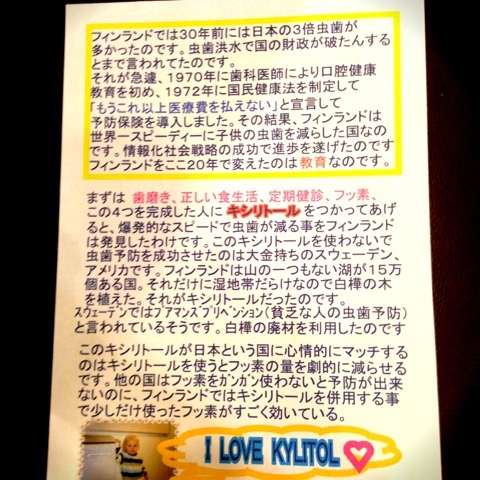 フィンランドでは30年前には日本の3倍虫歯が
多かったのです。虫歯洪水で国の財政が破たんする
とまで言われてたのです。
それが急遽、1970年に歯科医師により口腔健康
教育を初め、1972年に国民健康法を制定して
「もうこれ以上医療費を払えない」と宣言して
予防保険を導入しました。その結果、フィンランドは
世界一スピーディーに子供の虫歯を減らした国なの
です。情報化社会戦略の成功で進歩を遂げたのです
フィンランドをここ20年で変えたのは教育なのです。
まずは 歯磨き、正しい食生活、定期健診、フッ素、
この4つを完成した人に キシリトール をつかってあげ
ると、爆発的なスピードで虫歯が減る事をフィンランド
は発見したわけです。このキシリトールを使わないで
虫歯予防を成功させたのは大金持ちのスウェーデン、
アメリカです。フィンランドは山の一つもない湖が15万
個ある国。それだけに湿地帯だらけなので白樺の木
を植えた。それがキシリトールだったのです。
スウェーデンではプアマンズプリベンション(貧乏な人の虫歯予防)
と言われているそうです。白樺の廃材を利用したのです
このキシリトールが日本という国に心情的にマッチする
のはキシリトールを使うとフッ素の量を劇的に減らせる
です。他の国はフッ素をガンガン使わないと予防が出来
ないのに、フィンランドではキシリトールを併用する事
で少しだけ使ったフッ素がすごく効いている。
I LOVE KYLITOL